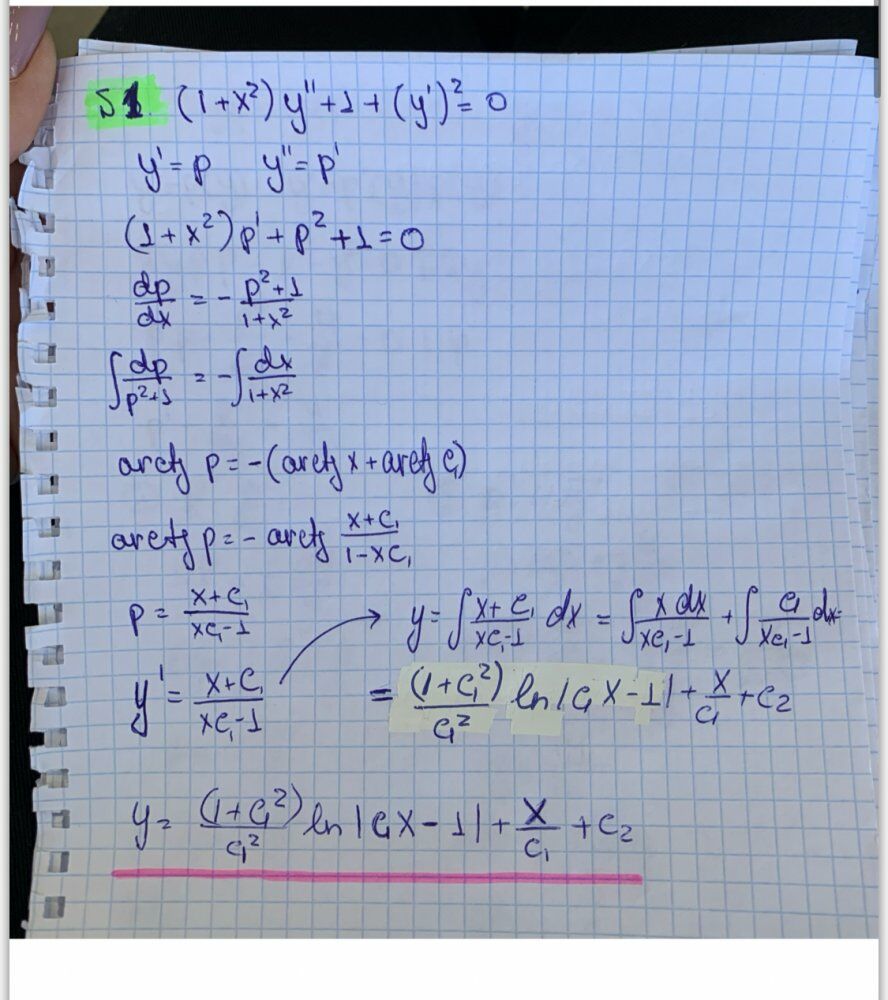 51. (1+x²)y''+1+(y')²=0
y'=p y''=p'
(1+x²)p'+p²+1=0
dp/dx = - (p²+1)/(1+x²)
∫dp/(p²+1) = -∫dx/(1+x²)
arctg p=-(arctg x+arctg C₁)
arctg p=- arctg (x+C₁)/(1-xC₁)
p = (x+C₁)/(xC₁-1)
y=∫(x+C₁)/(xC₁-1) dx = ∫x dx/(xC₁-1) + ∫C₁/(xC₁-1) dx=
y' = (x+C₁)/(xC₁-1)
= (1+C₁²)/C₁² ln|C₁x-1|+x/C₁+C₂
y= (1+C₁²)/C₁² ln|C₁x-1|+x/C₁+C₂